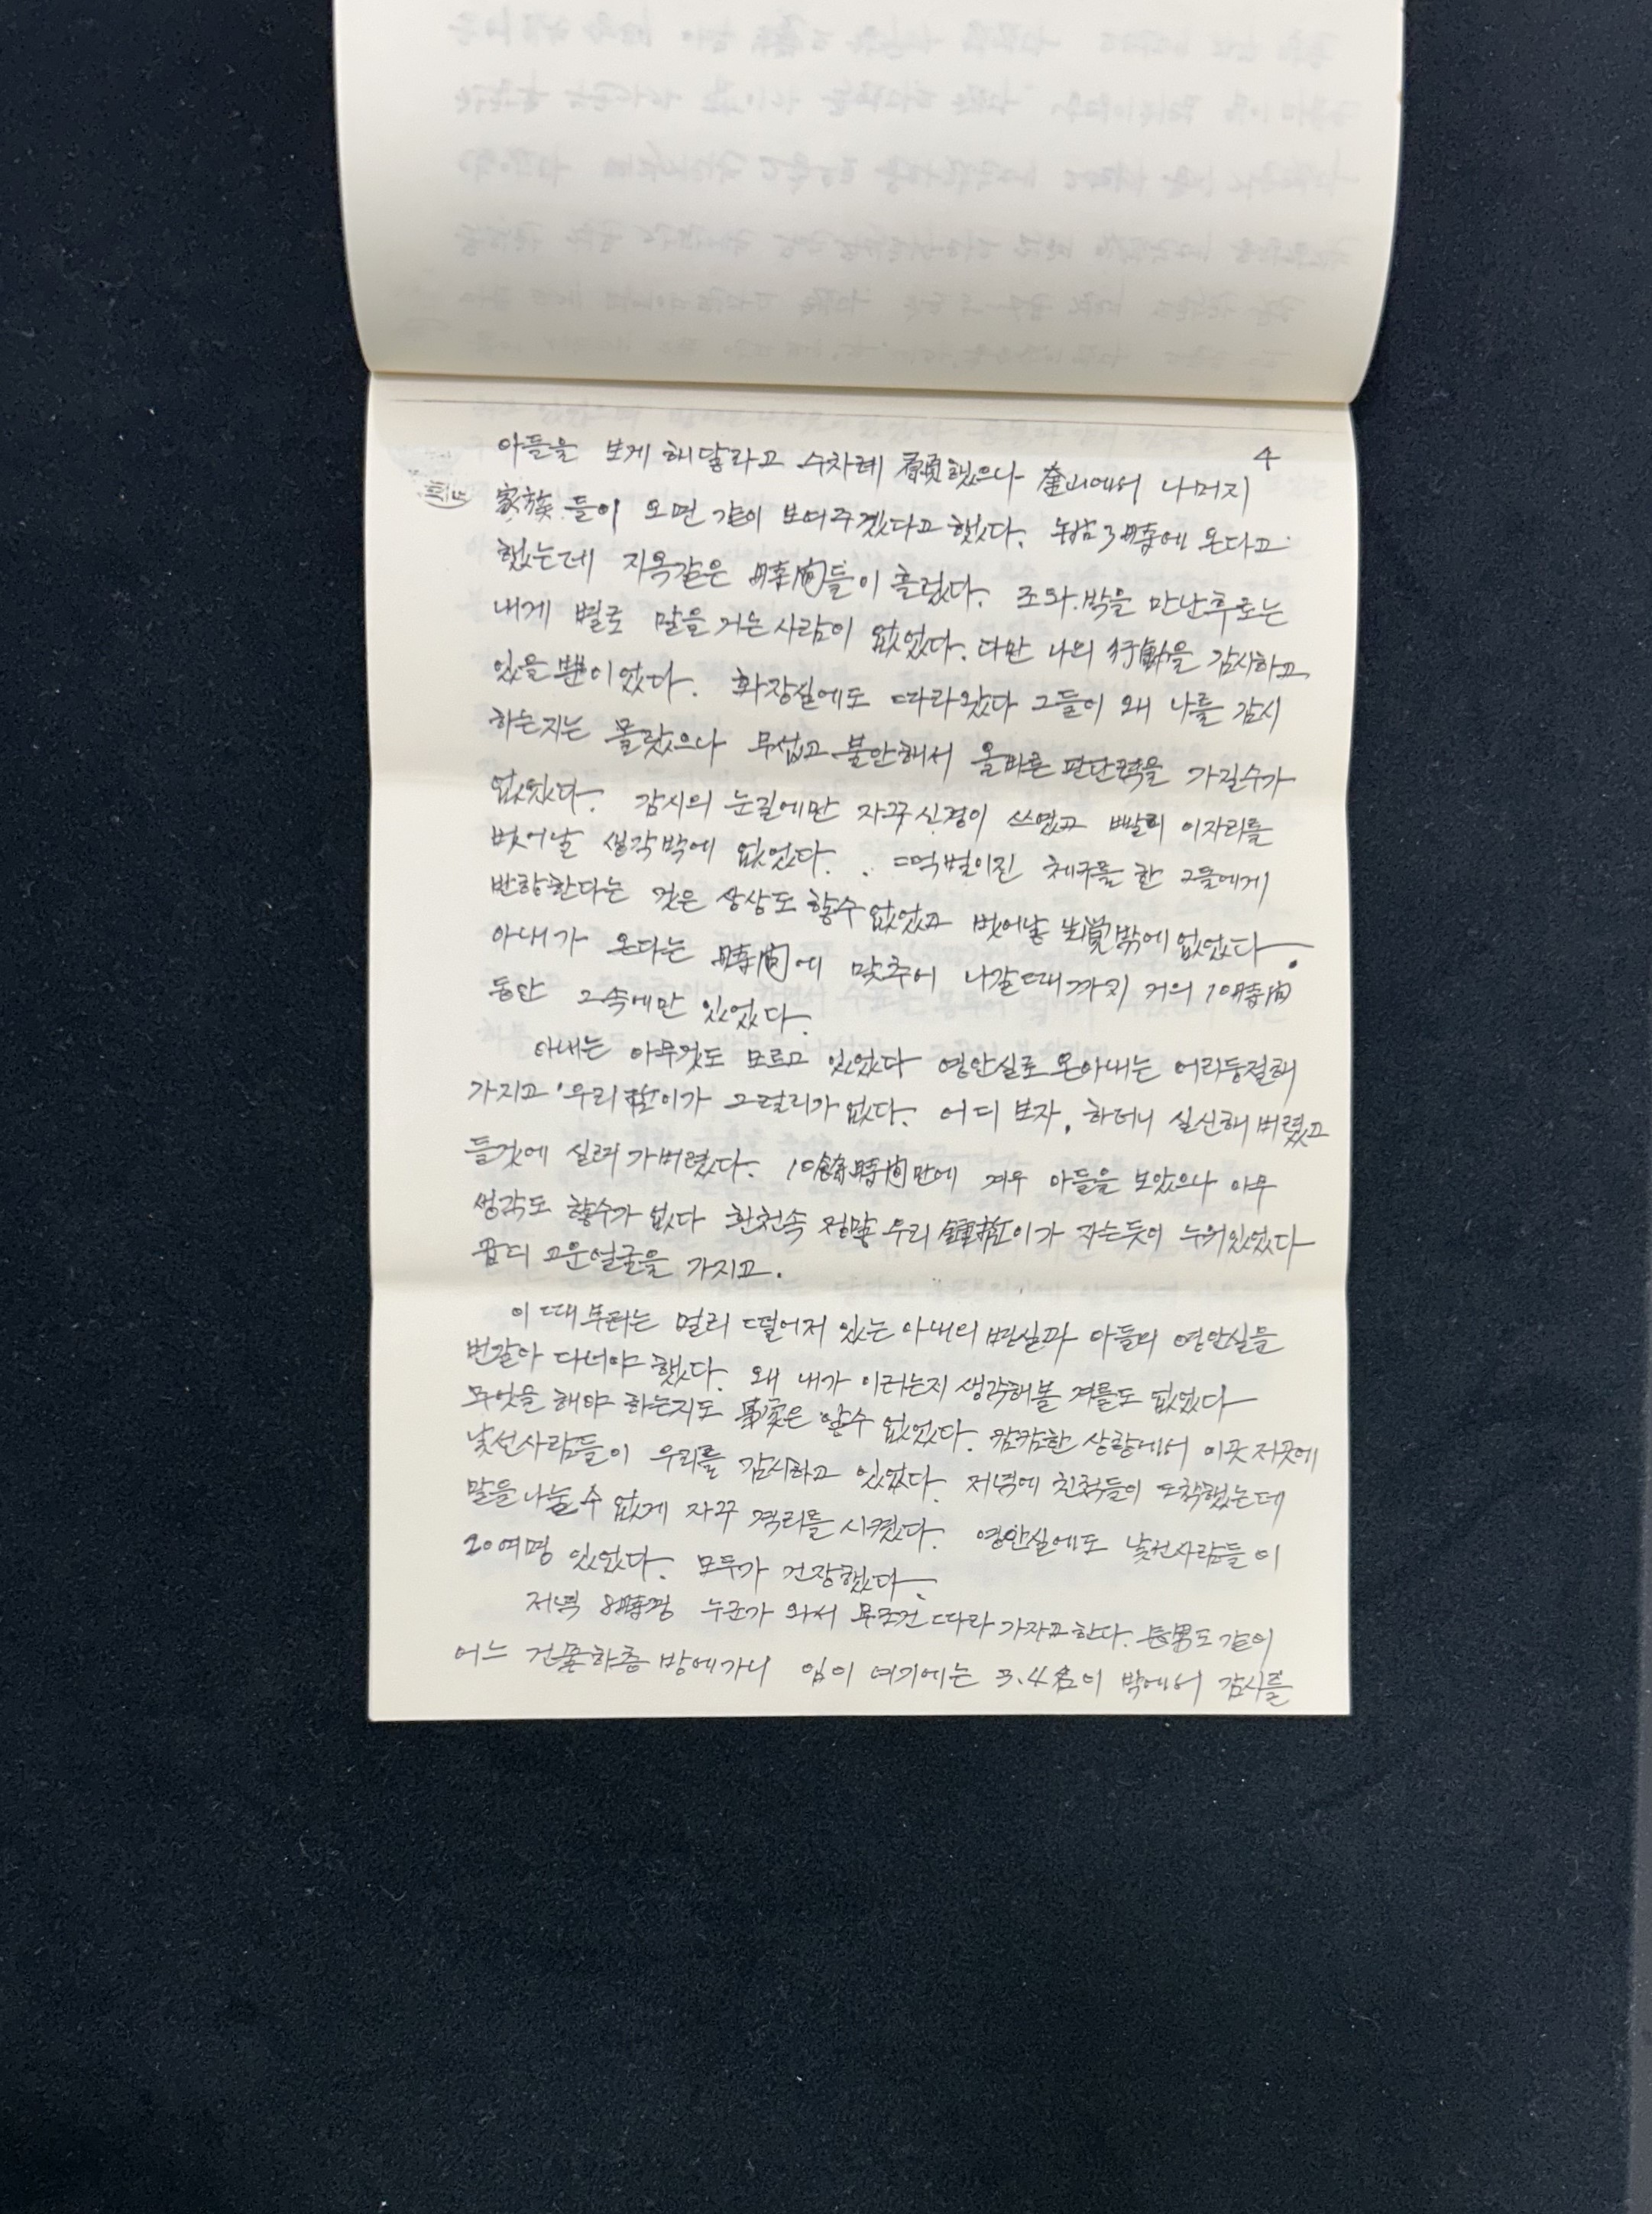 4
아들을 보게 해달라고 수차례 願했으나 釜山에서 나머지
家族들이 오면 같이 보여주겠다고 했다. 3時에 온다고
했는데 지옥같은 時間들이 흘렀다. 조와.박을 만난후로는
내게 별로 말을 거는 사람이 없었다. 다만 나의 行動을 감시하고
있을 뿐이었다. 화장실에도 따라왔다 그들이 왜 나를 감시
하는지는 몰랐으나 무섭고 불안해서 올바른 판단력을 가질수가
없었다. 감시의 눈길에만 자꾸 신경이 쓰였고 빨리 이자리를
벗어날 생각밖에 없었다. 떡벌이진 체구를 한 그들에게
반항한다는 것은 상상도 할수 없었고 벗어날 生覺밖에 없었다.
아내가 온다는 時間에 맞추어 나갈때까지 거의 10時間
동안 그속에만 있었다.
아내는 아무것도 모르고 있었다 영안실로 온아내는 어리둥절해
가지고 '우리 哲이가 그럴리가 없다. 어디 보자, 하더니 실신해 버렸고
들것에 실려 가버렸다. 10餘時間만에 겨우 아들을 보았으나 아무
생각도 할수가 없다 흰천속 정말 우리 鍾哲이가 자는듯이 누워있었다
곱디 고운얼굴을 가지고.
이때부터는 멀리 떨어져 있는 아내의 병실과 아들의 영안실을
번갈아 다녀야 했다. 왜 내가 이러는지 생각해볼 겨를도 없었다
무엇을 해야 하는지도 事実은 알수 없었다. 캄캄한 상황에서 이곳 저곳에
낯선사람들이 우리를 감시하고 있었다. 저녁에 친척들이 도착했는데
말을 나눌 수 없게 자꾸 격리를 시켰다. 영안실에도 낯선사람들이
20여명 있었다. 모두가 건장했다.
저녁 8時경 누군가 와서 무조건 따라 가자고 한다. 長男도 같이
어느 건물하층 방에가니 입이 여기에는 3.4名이 밖에서 감시를